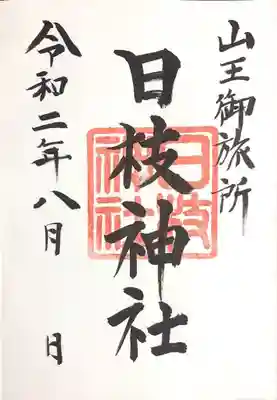 山王御旅所
日枝神社
日枝神社
令和二年八月 日